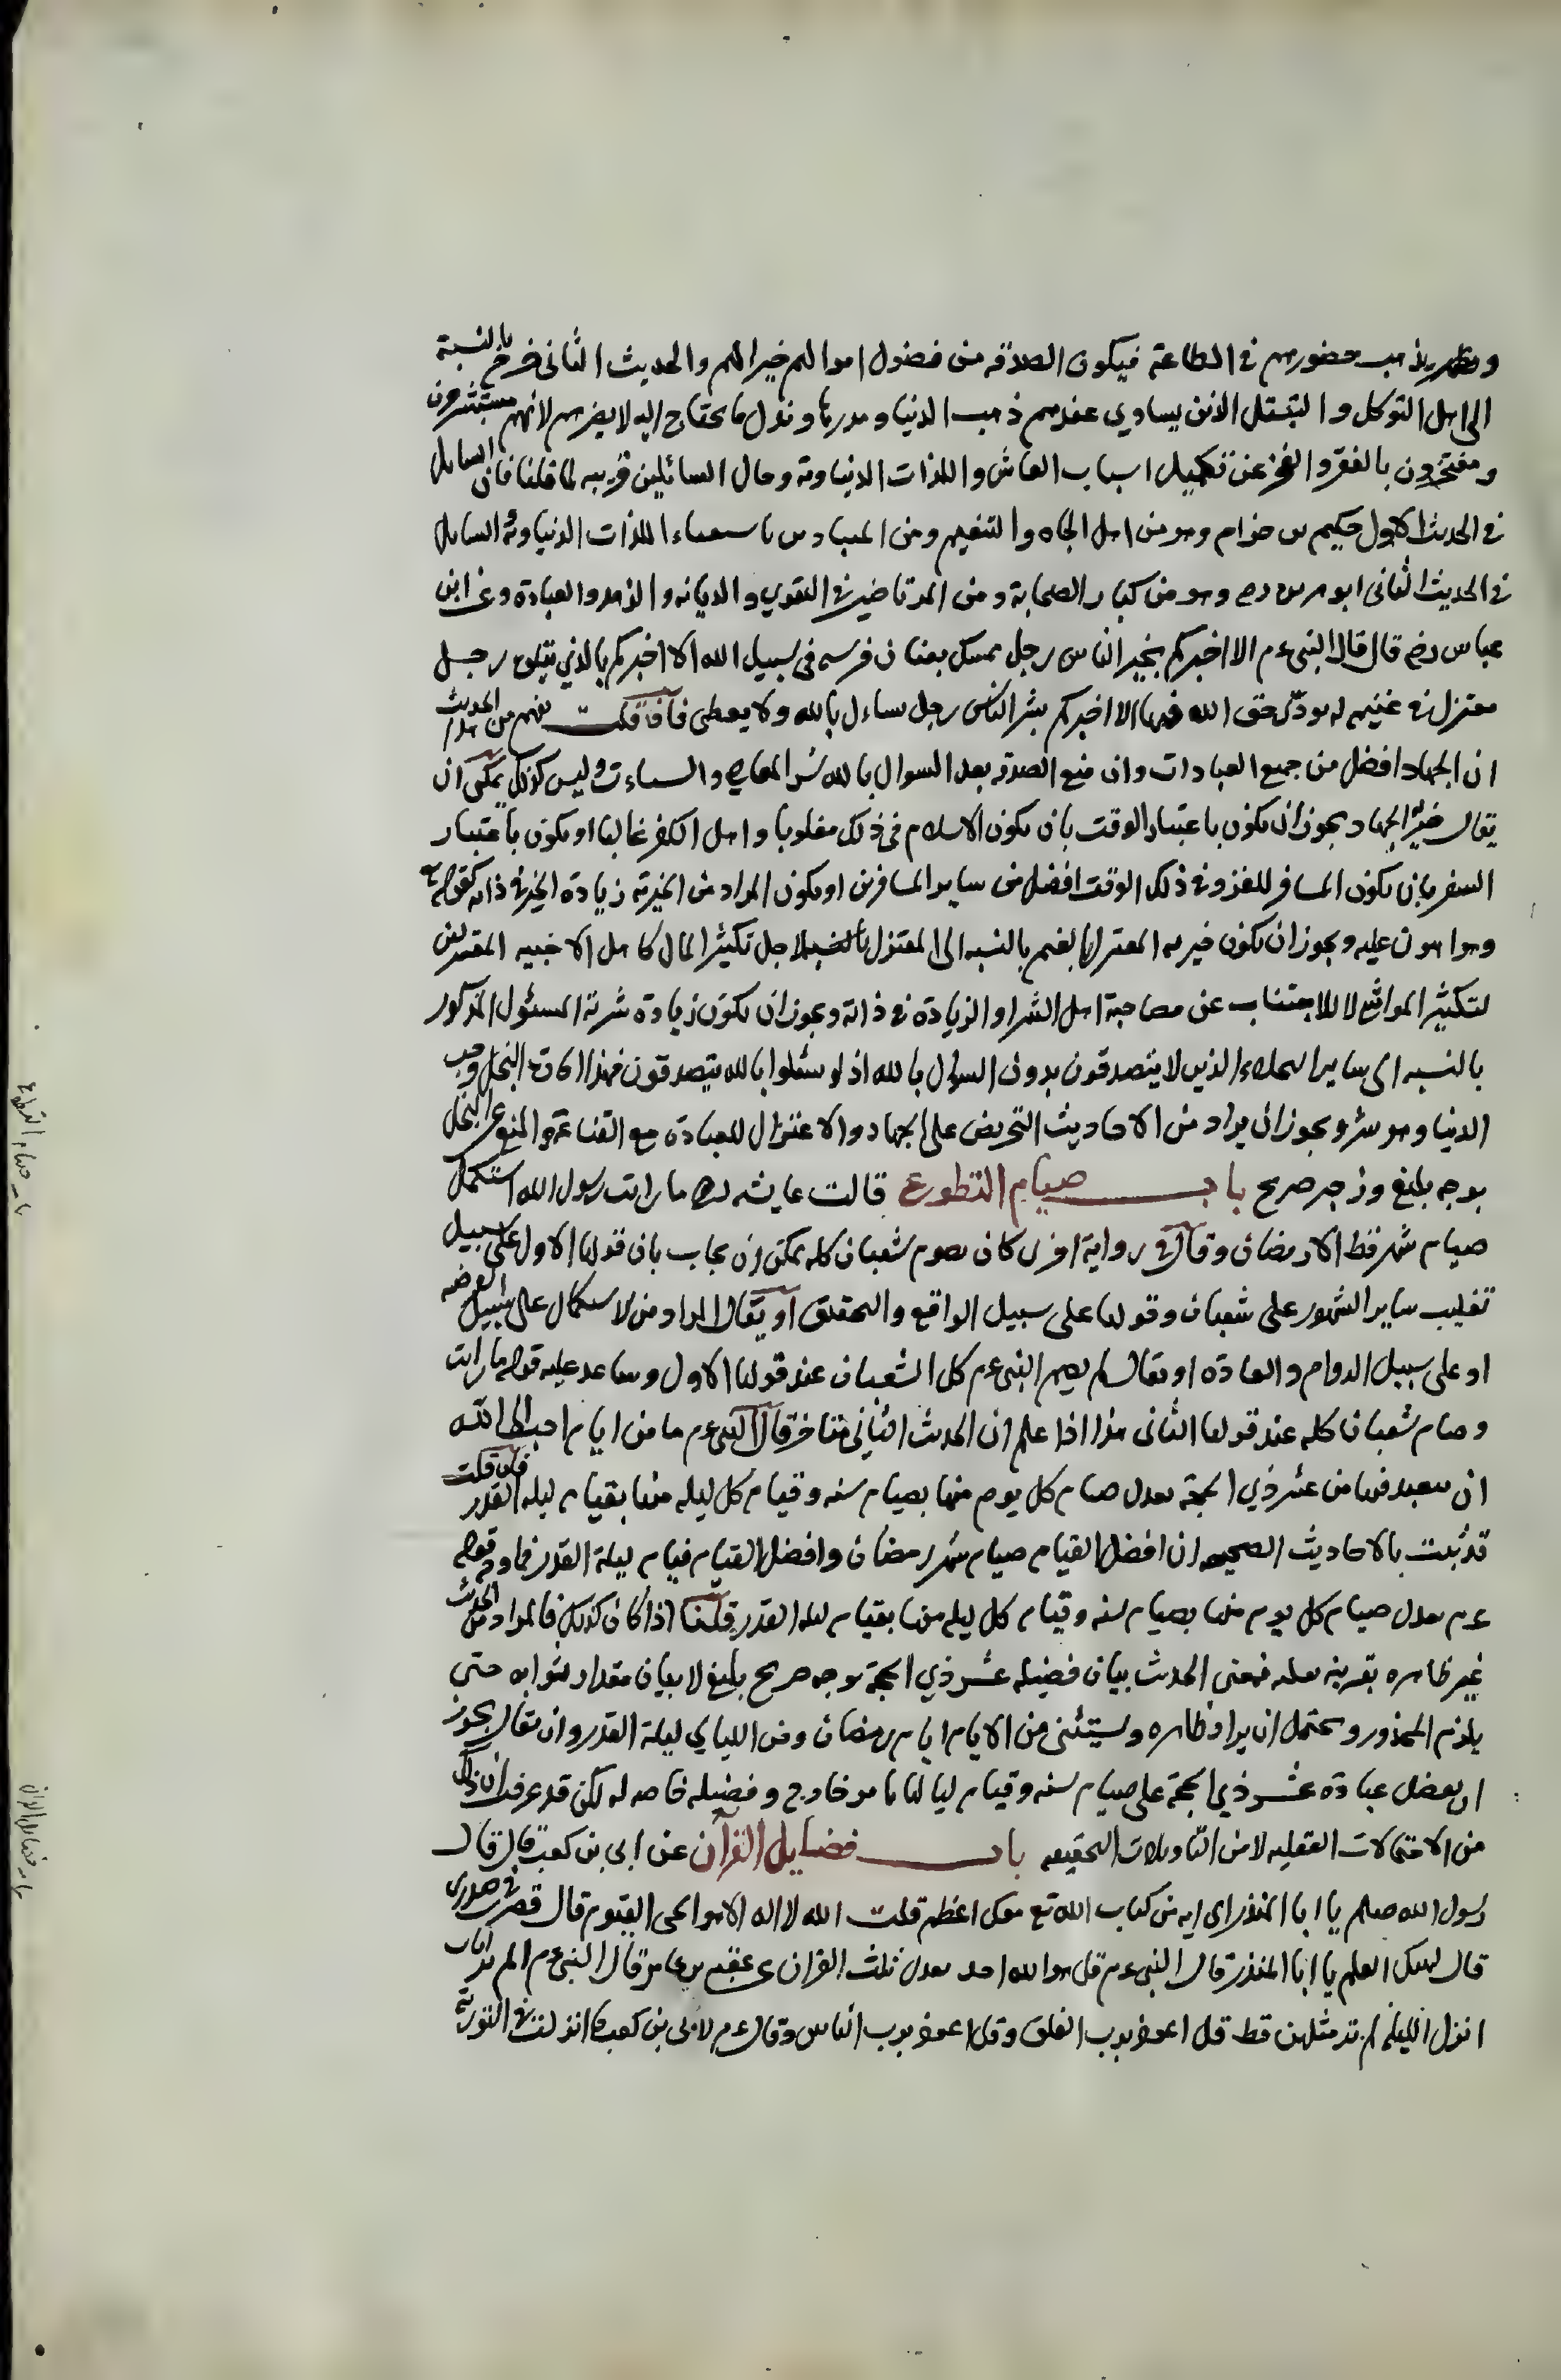 ويذهب حضورهم في الطاعة فيكون الصدقه من فضول اموالهم خيرا لهم والحديث الثانى بالنسبة
الى اهل التوكل والتبتل الذين يساوي عندهم ذهب الدنيا ومدرها وبذل ما يحتاج اليه لا يضرهم لانهم مستبشرون
ومفتخرون بالفقر و عن تكميل اسباب المعاش واللذات الدنياوية وحال السائلين قريبه لما قلنا فان السايل
في الحديث الاول حكيم بن حزام وهو من اهل الجاه والتنعيم ومن اللذات الدنياوية والسايل
في الحديث الثانى ابو هريره رضـ وهو من كبار الصحابة ومن المرتاضين في التقوي والديانه والزهد والعبادة وعن ابن
عباس رضـ قال قال النبى عـم الا اخبركم بخير الناس رجل ممسك بعنان فرسه فى سبيل الله الا اخبركم بالذي يتلوه رجل
معتزل في غنيمه له يودّى حق الله فيها الا اخبركم بشر الناس رجل يساءل بالله ولا يعطى فان قلت يفهم من هذا الحديث
ان الجهاد افضل من جميع العبادات وان منع الصدقه بعد السوال بالله شر المعاصي والسياءت وليس كذلك يمكن ان
يقال خيرية الجهاد يجوز ان يكون باعتبار الوقت بان يكون الاسلام فى ذلك مغلوبا واهل الكفر غالبا او يكون باعتبار
السفر بان يكون المسافر للغزو في ذلك الوقت افضل من ساير المسافرين او يكون المراد من الخيرية زيادة الخير في ذاته كقوله تع
وهو اهون عليه ويجوز ان يكون خيريه المعتزل بالغنم بالنسبه الى المعتزل لاجل تكثير المال كاهل الاخبيه
لتكثير المواشى لا للاجتناب عن مصاحبة اهل الشر او الزيادة في ذاته ويجوز ان يكون زيادة شرية المسئول المذكور
بالنسبه الى ساير البخلاء الذين لا يتصدقون بدون السؤال بالله اذ لو سئلوا بالله يتصدقون فهذا البخل وحب
الدنيا وهو شر ويجوز ان يراد من الاحاديث التحريض على الجهاد والاعتزال للعبادة مع القناعة والمنع عن البخل
بوجه بليغ وزجر صريح باب صيام التطوع قالت عايشه رضـ ما رايت رسول الله استكمل
صيام شهر قط الا رمضان وقال في رواية اخرى كان يصوم شعبان كله يمكن ان يجاب بان قولها الاول على سبيل
تغليب ساير الشهور على شعبان وقولها على سبيل الواقع والتحقيق او يقال المراد من الاستكمال على سبيل الفرضيه
او على سبيل الدوام والعادة او يقال لم يصم النبى عـم كل الشعبان عند قولها الاول وساعد عليه قوله ما رايت
وصام شعبان كله عند قولها الثانى هذا اذا علم ان الحديث الثانى متاخر قال النبى عـم ما من ايام احب الى الله
ان يتعبد فيها من عشر ذي الحجة يعدل صيام كل يوم منها بصيام سنه وقيام كل ليله منها بقيام ليله القدر فان قلت
قد ثبت بالاحاديث الصحيحه ان افضل القيام صيام شهر رمضان وافضل القيام قيام ليلة القدر فما وجه قوله
عـم يعدل صيام كل يوم منها بصيام سنه وقيام كل ليله منها بقيام ليله القدر قلنا اذا كان كذلك فالمراد من الحديث
غير ظاهره بقرينه فمعنى الحديث بيان فضيله عشر ذي الحجة بوجه صريح بليغ لا بيان مقدار ثوابه حتى
يلزم المحذور ويحتمل ان يراد ظاهره ويستثنى من الايام ايام رمضان ومن الليالي ليلة القدر وان يقال يجوز
ان يفضل عبادة عشر ذي الحجة على صيام سنه وقيام لياليها بامر خارج وفضيله خاصه له لكن قد عرفت ان ذلك
من الاحتمالات العقليه لا من التاويلات التحقيقيه باب فضايل القرآن عن ابى بن كعب قال قال
رسول الله صلعم يا ابا المنذر اى ايه من كتاب الله تع معك اعظم قلت الله لا اله الا هو الحى القيوم قال فضرب في صدرى
قال ليهنك العلم يا ابا المنذر قال النبى عـم قل هو الله احد يعدل ثلث القران عن عقبه بن عامر قال النبى عـم الم تر ايات
انزل الليله لم تر مثلهن قط قل اعوذ برب الفلق وقل اعوذ برب الناس وقال عـم لابى بن كعب ما انزلت في التورية